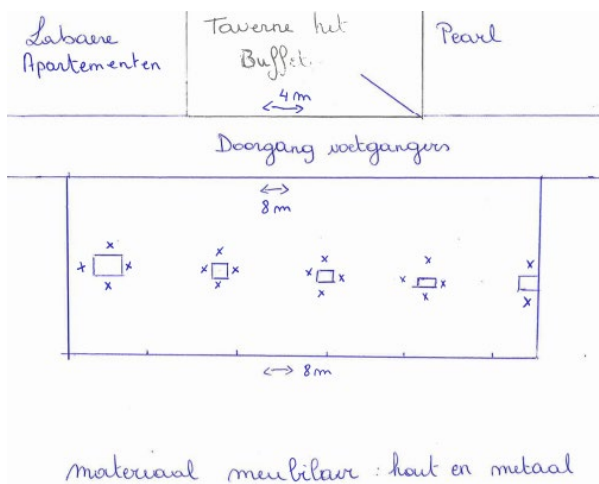 Labaere
Apartementen
Taverne het
Buffet.
Pearl
4m
Doorgang voetgangers
8m
8m
materiaal meubilair : hout en metaal